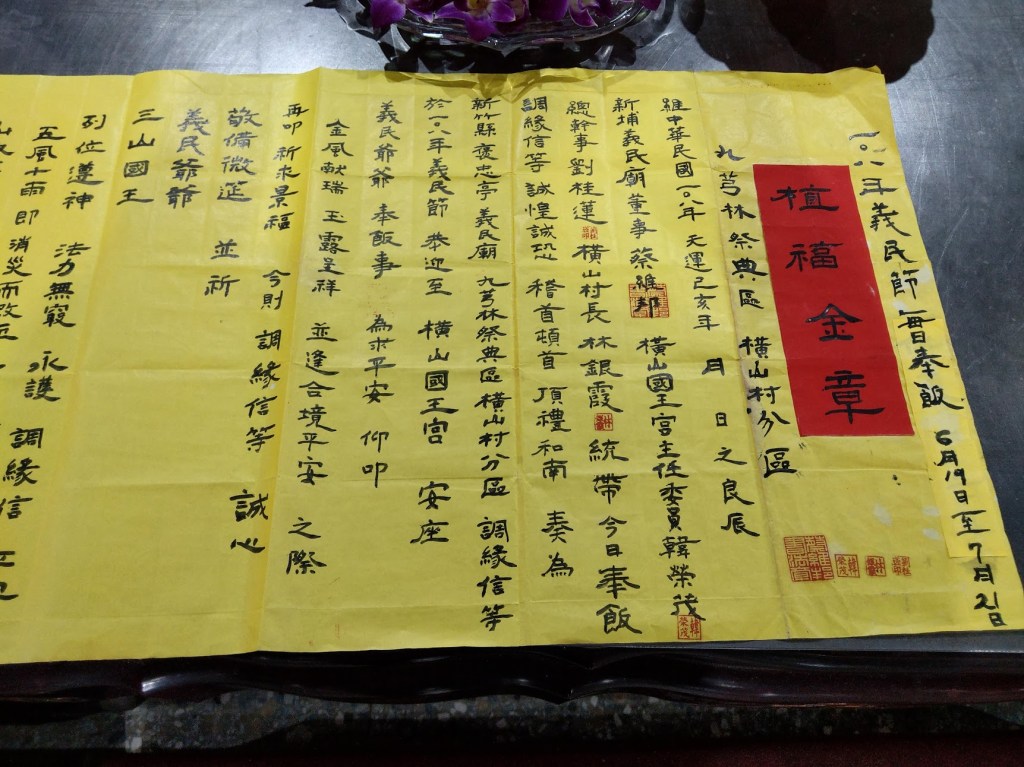 一〇八年義民節每日奉飯 6月19日至7月21日
植福金章
九芎林祭典區 橫山村分區
維中華民國一〇八年 天運己亥年 月 日之良辰
新埔義民廟董事蔡維邦 橫山國王宮主任委員韓榮茂
總幹事劉桂蓮 橫山村長林銀霞 統帶今日奉飯
調緣信等 誠惶誠恐 稽首頓首 頂禮和南 奏為
新竹縣褒忠亭義民廟 九芎林祭典區橫山村分區 調緣信等
於一〇八年義民節 恭迎至 橫山國王宮 安座
義民爺爺 奉飯事 為求平安 仰叩
金風献瑞 玉露呈祥 並逢合境平安 之際
再叩祈求景福 今則 調緣信等 誠心
敬備微筵 並祈
義民爺爺
三山國王
列位尊神 法力無窮 永護 調緣信
五風十雨即消災而改